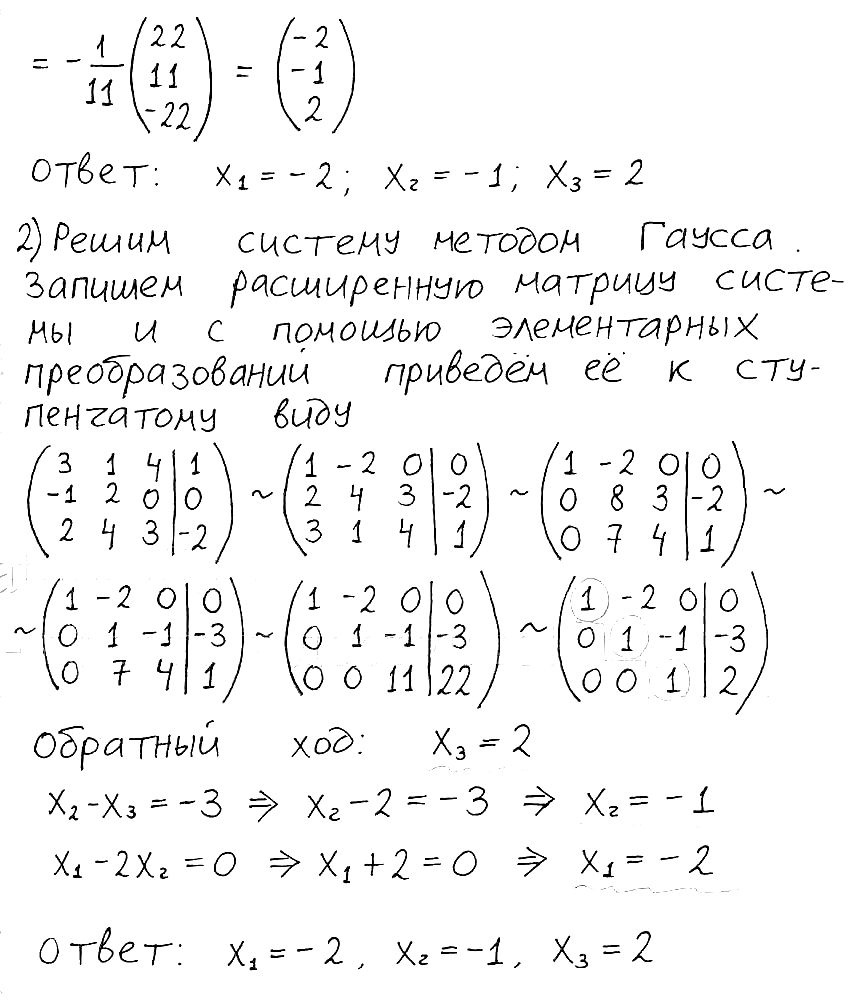 = -1/11 (22 11 -22) = (-2 -1 2)
Ответ: x₁ = -2; x₂ = -1; x₃ = 2
2) Решим систему методом Гаусса.
Запишем расширенную матрицу систе-
мы и с помощью элементарных
преобразований приведём её к сту-
пенчатому виду
(3 1 4 | 1) ~ (1 -2 0 | 0) ~ (1 -2 0 | 0) ~
(-1 2 0 | 0) (2 4 3 | -2) (0 8 3 | -2)
(2 4 3 | -2) (3 1 4 | 1) (0 7 4 | 1)
~ (1 -2 0 | 0) ~ (1 -2 0 | 0) ~ (1 -2 0 | 0)
(0 1 -1 | -3) (0 1 -1 | -3) (0 1 -1 | -3)
(0 7 4 | 1) (0 0 11 | 22) (0 0 1 | 2)
Обратный ход: x₃ = 2
x₂ - x₃ = -3 ⇒ x₂ - 2 = -3 ⇒ x₂ = -1
x₁ - 2x₂ = 0 ⇒ x₁ + 2 = 0 ⇒ x₁ = -2
Ответ: x₁ = -2, x₂ = -1, x₃ = 2